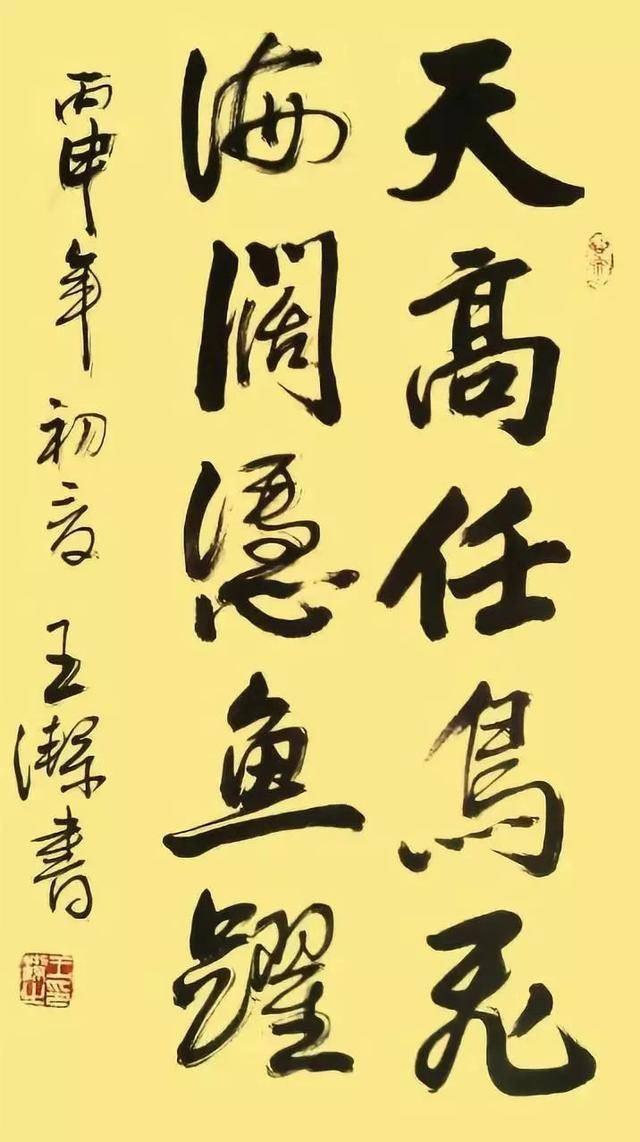 天高任鳥飛
海闊憑魚躍
丙申年初夏 王潔書